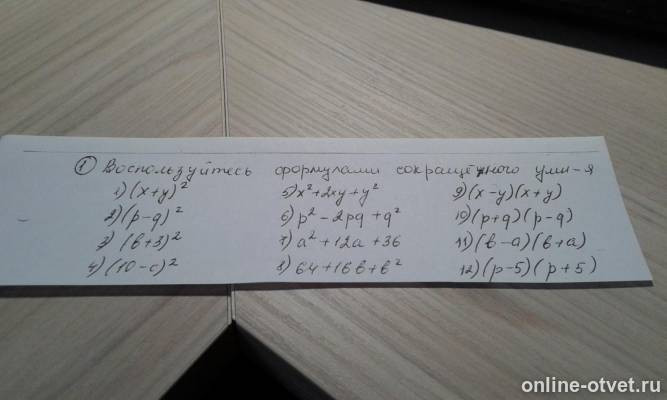 ① Воспользуйтесь формулами сокращённого умн-я
1) (x+y)² 5) x²+2xy+y² 9) (x-y)(x+y)
2) (p-q)² 6) p²-2pq+q² 10) (p+q)(p-q)
3) (b+3)² 7) a²+12a+36 11) (b-a)(b+a)
4) (10-c)² 8) 64+16b+b² 12) (p-5)(p+5)
online-otvet.ru